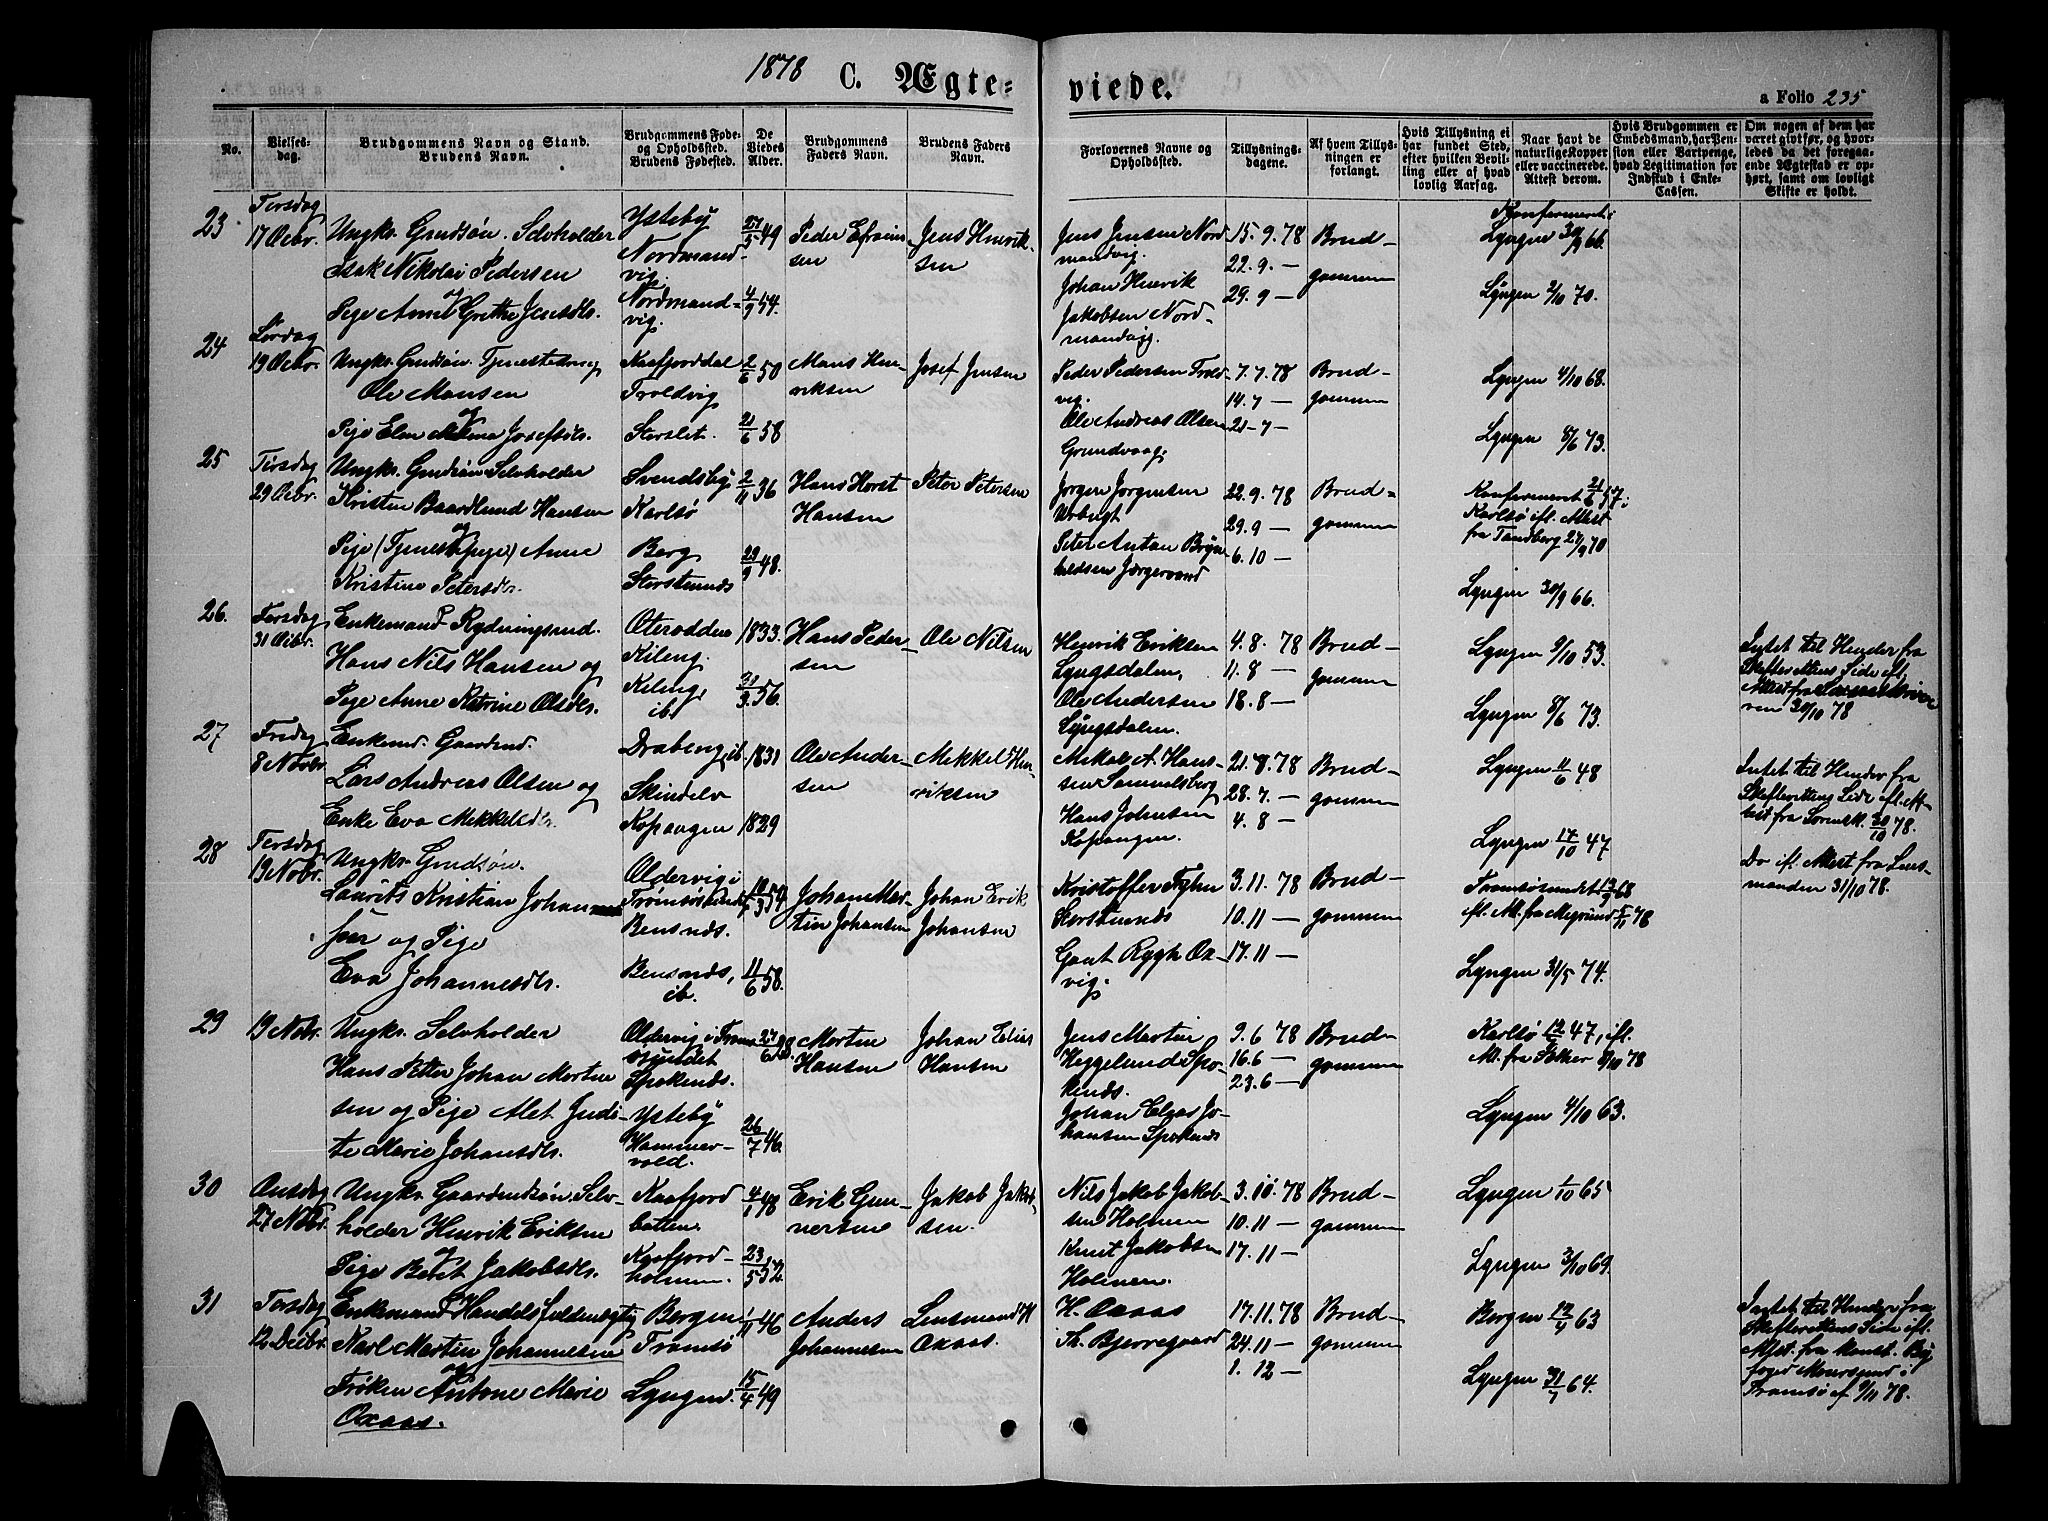 1878 C. Ægte=
viede.
a Folio 235
No.
Vielses-
dag.
Brudgommens Navn og Stand.
Brudens Navn.
Brudgommens Føde-
og Opholdsted.
Brudens Fødested.
De
Viedes
Alder.
Brudgommens
Faders Navn.
Brudens Faders
Navn.
Forlovernes Navne og
Opholdsted.
Tillysnings-
dagene.
Af hvem Tillys-
ningen er
forlangt.
Hvis Tillysning ei
har fundet Sted,
efter hvilken Bevil-
ling eller af hvad
lovlig Aarsag.
Naar havt de
naturlige Kopper
eller vaccinerede.
Attest derom.
Hvis Brudgommen er
Embedsmand, har Pen-
sion eller Vartpenge,
hvad Legitimation for
Indskud i Enke-
Cassen.
Om nogen af dem har
været givt før, og hvor-
ledes da det foregaa-
ende Ægteskab er op-
hørt, samt om lovligt
Skifte er holdt.
23.
Torsdag
17 Octbr.
Ungkr. Grndsøn. Selvholder
Isak Nikolai Pedersen
og
Pige Anne Grethe Jensdtr.
Ysteby
Nordmand-
vig.
Nordmand-
vig.
27/5 49
4/9 54.
Peder Efraim-
sen
Jens Henrik-
sen
Jens Jensen Nord-
mandvig.
Johan Henrik
Jakobsen Nord-
mandvig.
15.9.78
22.9.—
29.9—
Brud-
gommen
Konfirmeret i
Lyngen 30/9 66.
Lyngen 2/10 70.
24
Lørdag
19 Octbr.
Ungkr. Grndsøn. Tjenestedreng
Ole Mansen
og
Pige Elen Josefsdtr.
Kaafjorddal
Troldvig
Storslet.
2/6 50
21/6 58
Mans Hen-
riksen
Josef Jensen
Peder Pedersen Trold-
vig.
Ole Andreas Olsen
Grundvaag.
7.7.78
14.7—
21.7—
Brud-
gommen
Lyngen 4/10 68.
Lyngen 8/6 73.
25
Tirsdag
29 Octbr.
Ungkr. Grndsøn Selvholder
Kristen Baardlund Hansen
og
Pige (Tjenestepige) Anne
Kristine Petersdtr.
Svendsby
Karlsø
Berg
Storstennds
2/11 36
29/9 48.
Hans Horst
Hansen
Peter Petersen
Jørgen Jørgensen
Urbugt
Peter Antan Bryn-
hildsen Jægervand
22.9.78
29.9—
6.10—
Brud=
gommen
Konfirmeret 21/6 57 i
Karlsø ifl. Attest
fra Tandberg 27/9 70
Lyngen 30/9 66.
26.
Torsdag
31 Octbr.
Enkemand Rydningsmd.
Hans Nils Hansen og
Pige Anne Katrine Olsdtr.
Oterodden
Kileng.
Kileng,
ib.
1833.
31/3 56.
Hans Peder-
sen
Ole Nilsen
Henrik Eriksen
Lyngsdalen,
Ole Andersen
Lyngsdalen.
4.8.78
11.8—
18.8—
Brud-
gommen
Lyngen 9/10 53.
Lyngen 8/6 73.
Intet til Hinder fra
Skifterettens Side ifl.
Attest fra Sorenskrive-
ren 30/10 78
27
Fredag
8 Novbr.
Enkemd. Gaardmd.
Lars Andreas Olsen og
Enke Eva Mekkelsdtr.
Drabeng, ib.
Skindelv
Kopangen
1831
1829
Ole Ander-
sen
Mekkel Hen-
riksen
Mikal A. Han-
sen Sammelsberg
Hans Johnsen
Kopangen.
21.7.78
28.7.—
4.8—
Brud-
gommen
Lyngen 11/6 48
Lyngen 17/10 47
Intet til Hinder fra
Skifterettens Side ifl. At-
test fra Sorensk. 30/10 78.
28
Tirsdag
19 Novbr.
Ungkr. Grndsøn.
Laurits Kristian Johan-
sen og Pige
Eva Johannesdtr.
Oldervig i
Tromsøsundet
Bensnds.
Bensnds,
ib.
54
11/6 58.
Johan Mar-
tin Johansen
Johan Erik
Johansen
Kristoffer Fyhn
Storstennds
Gaut Rygh Ox-
vig.
3.11.78
10.11—
17.11—
Brud-
gommen
Tromsøsundet 68
ifl. Att. fra 78
Lyngen 31/5 74.
Do ifl. Attest fra Lens-
manden 31/10 78.
29
19 Novbr.
Ungkr. Selvholder
Hans Petter Johan Morten-
sen og Pige Alet Judi-
te Marie Johansdtr.
Oldervig i Troms-
sundet
Spokends.
Ysteby
Hammer-
vold.
26/7 46.
Morten
Hansen
Johan Elias
Hansen
Jens Martin
Heggelund Spo-
kends.
Johan Jo-
hansen Spokends
9.6.78
16.6—
23.6—
Brud-
gommen
Karlsø 47, ifl.
Att. fra 8/10 78
Lyngen 4/10 63.
30
Onsdag
27 Novbr.
Ungkr. Gaardmdsøn. Selv-
holder Henrik Eriksen
og
Pige Beret Jakobsdtr.
Kaafjord
botten.
Kaafjord-
holmen.
4/1 48
23/5 52.
Erik Gun-
nersen
Jakob Jakob-
sen.
Nils Jakob Jakob-
sen Holmen
Knut Jakobsen
Holmen.
3.10.78
10.11—
17.11—
Brud-
gommen
Lyngen 1/10 65
Lyngen 3/10 69.
31
Torsdag
12 Decbr.
Enkemand Handelsfuldmægtig
Karl Martin Johannesen
og
Frøken Antone Marie
Oxaas.
Bergen
Tromsø
Lyngen
1/11 46
15/4 49
Anders
Johannesen
Lensmand H
Oxaas.
H. Oxaas
Th. Bjerregaard
17.11.78
24.11—
1.12—
Brud-
gommen
Bergen 12/4 63
Lyngen 31/7 64.
Intet til Hinder fra
Skifterettens Side ifl.
Attst. fra Konst. By-
foged i
Tromsø af 9/11 78.